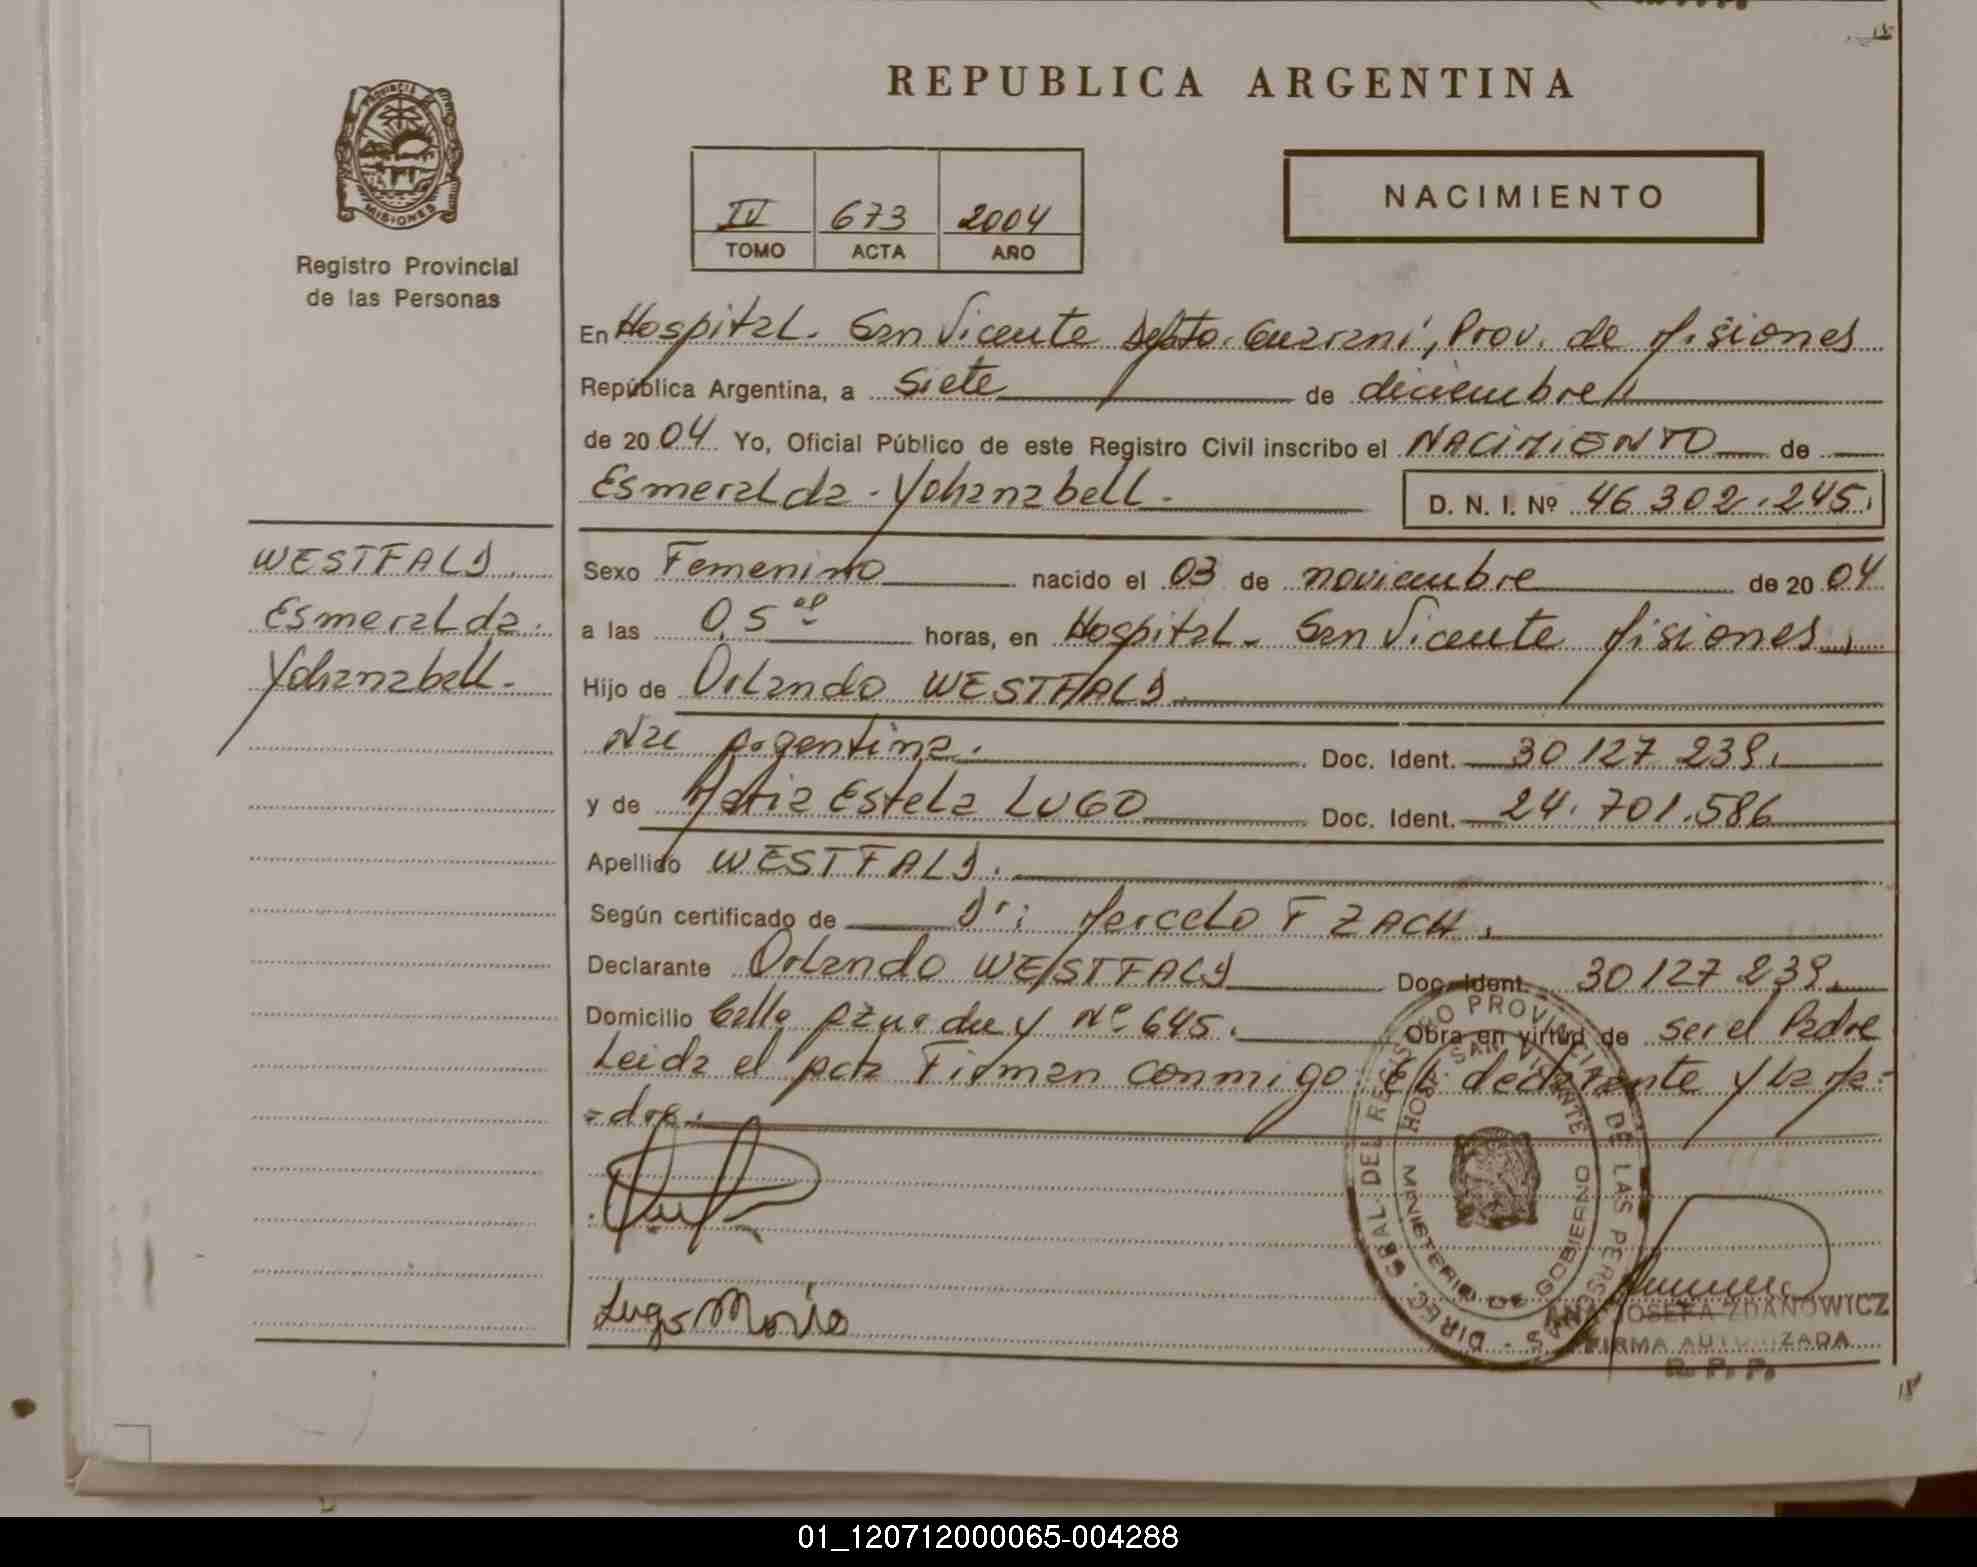 REPUBLICA ARGENTINA
PROVINCIA DE
MISIONES
Registro Provincial
de las Personas
IV 673 2004
TOMO ACTA AÑO
NACIMIENTO
En Hospital. San Vicente Depto. Guarani, Prov. de Misiones
República Argentina, a siete de diciembre
de 2004 Yo, Oficial Público de este Registro Civil inscribo el NACIMIENTO de
Esmeralda. Yohanabell.
D. N. I. Nº 46 302.245.
WESTFALD
Esmeralda.
Yohanabell.
Sexo Femenino nacido el 03 de noviembre de 2004
a las 0,5 horas, en Hospital. San Vicente Misiones.
Hijo de Orlando WESTFALD.
Nac Argentina. Doc. Ident. 30 127 239.
y de Maria Estela LUGO Doc. Ident. 24.701.586
Apellido WESTFALD.
Según certificado de Dr: Marcelo F ZACH.
Declarante Orlando WESTFALD Doc. Ident. 30 127 239.
Domicilio Calle Nº 645. Obra en virtud de ser el Padre
Leida el acta Firman conmigo el declarante y la Ma-
-dre.
Lugo Maria
DIREC. GRAL. DEL REGISTRO PROVINCIAL DE LAS PERSONAS
HOSP. SAN VICENTE
MINISTERIO DE GOBIERNO
ANA JOSEFA ZDANOWICZ
FIRMA AUTORIZADA
R. P. P.
01_120712000065-004288